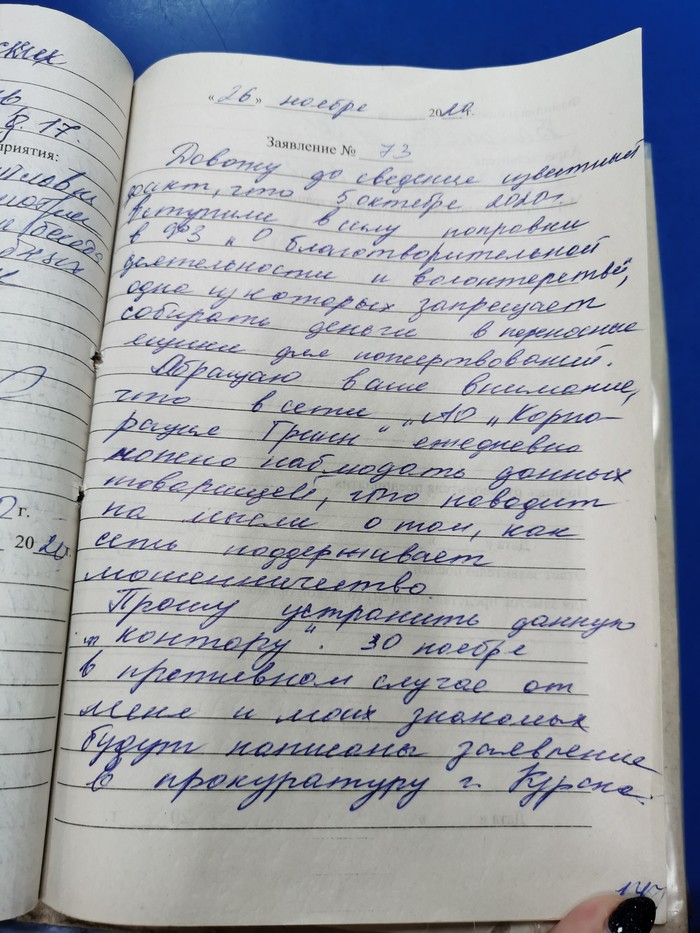 ских
§. 17.
приятия:
г.
20 20 г.
« 26 » ноября 2020г.
Заявление № 73
Довожу до сведение известный
факт, что 5 октября 2020г.
вступили в силу поправки
в ФЗ „О благотворительной
деятельности и волонтерстве",
одна из которых запрещает
собирать деньги в переносные
ящики для пожертвований.
Обращаю ваше внимание,
что в сети „АО „Корпо-
рация Гринн" ежедневно
можно наблюдать данных
товарищей, что наводит
на мысли о том, как
сеть поддерживает
мошенничество.
Прошу устранить данную
„контору". 30 ноября
В противном случае от
меня и моих знакомых
будут написаны заявление
в прокуратуру г. Курска.
147